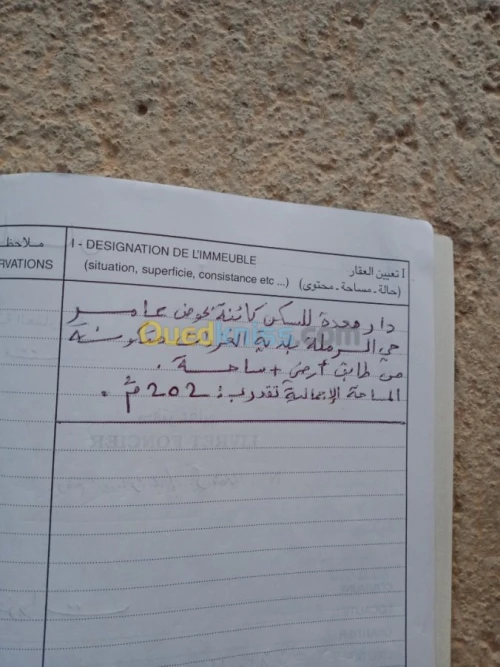 ملاحظ
RVATIONS
I - DESIGNATION DE L'IMMEUBLE
(situation, superficie, consistance etc ...)
I تعيين العقار
(حالة ـ مساحة ـ محتوى)
دار معدة للسكن كائنة بحوض عامر
حي الرملة بلدية مكونة
من طابق أرضي + ساحة .
المساحة الإجمالية تقدر ب : 202 م2 .
Ouedkniss.com
LIVRET FONCIER